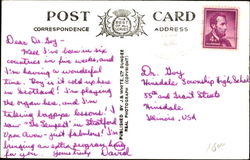 POST CARD
CORRESPONDENCE
ADDRESS
Dear Dr. Guy -
Well I've been in six
countries in five weeks, and
I'm having a wonderful
time. Boy is it cold up here
in Scotland! I'm playing
the organ here, and I'm
taking bagpipe lessons! I
"The Tempest" in Stratford
Upon Avon - just fabulous! I'm
bringing an extra program
for you. Yours truly David
PUBLISHED BY J.B. WHITE LTD DUNDEE
REAL PHOTOGRAPH (COPYRIGHT)
Dr. Guy
Hinsdale Township High School
55th and Grant Streets
Hinsdale
Illinois, USA